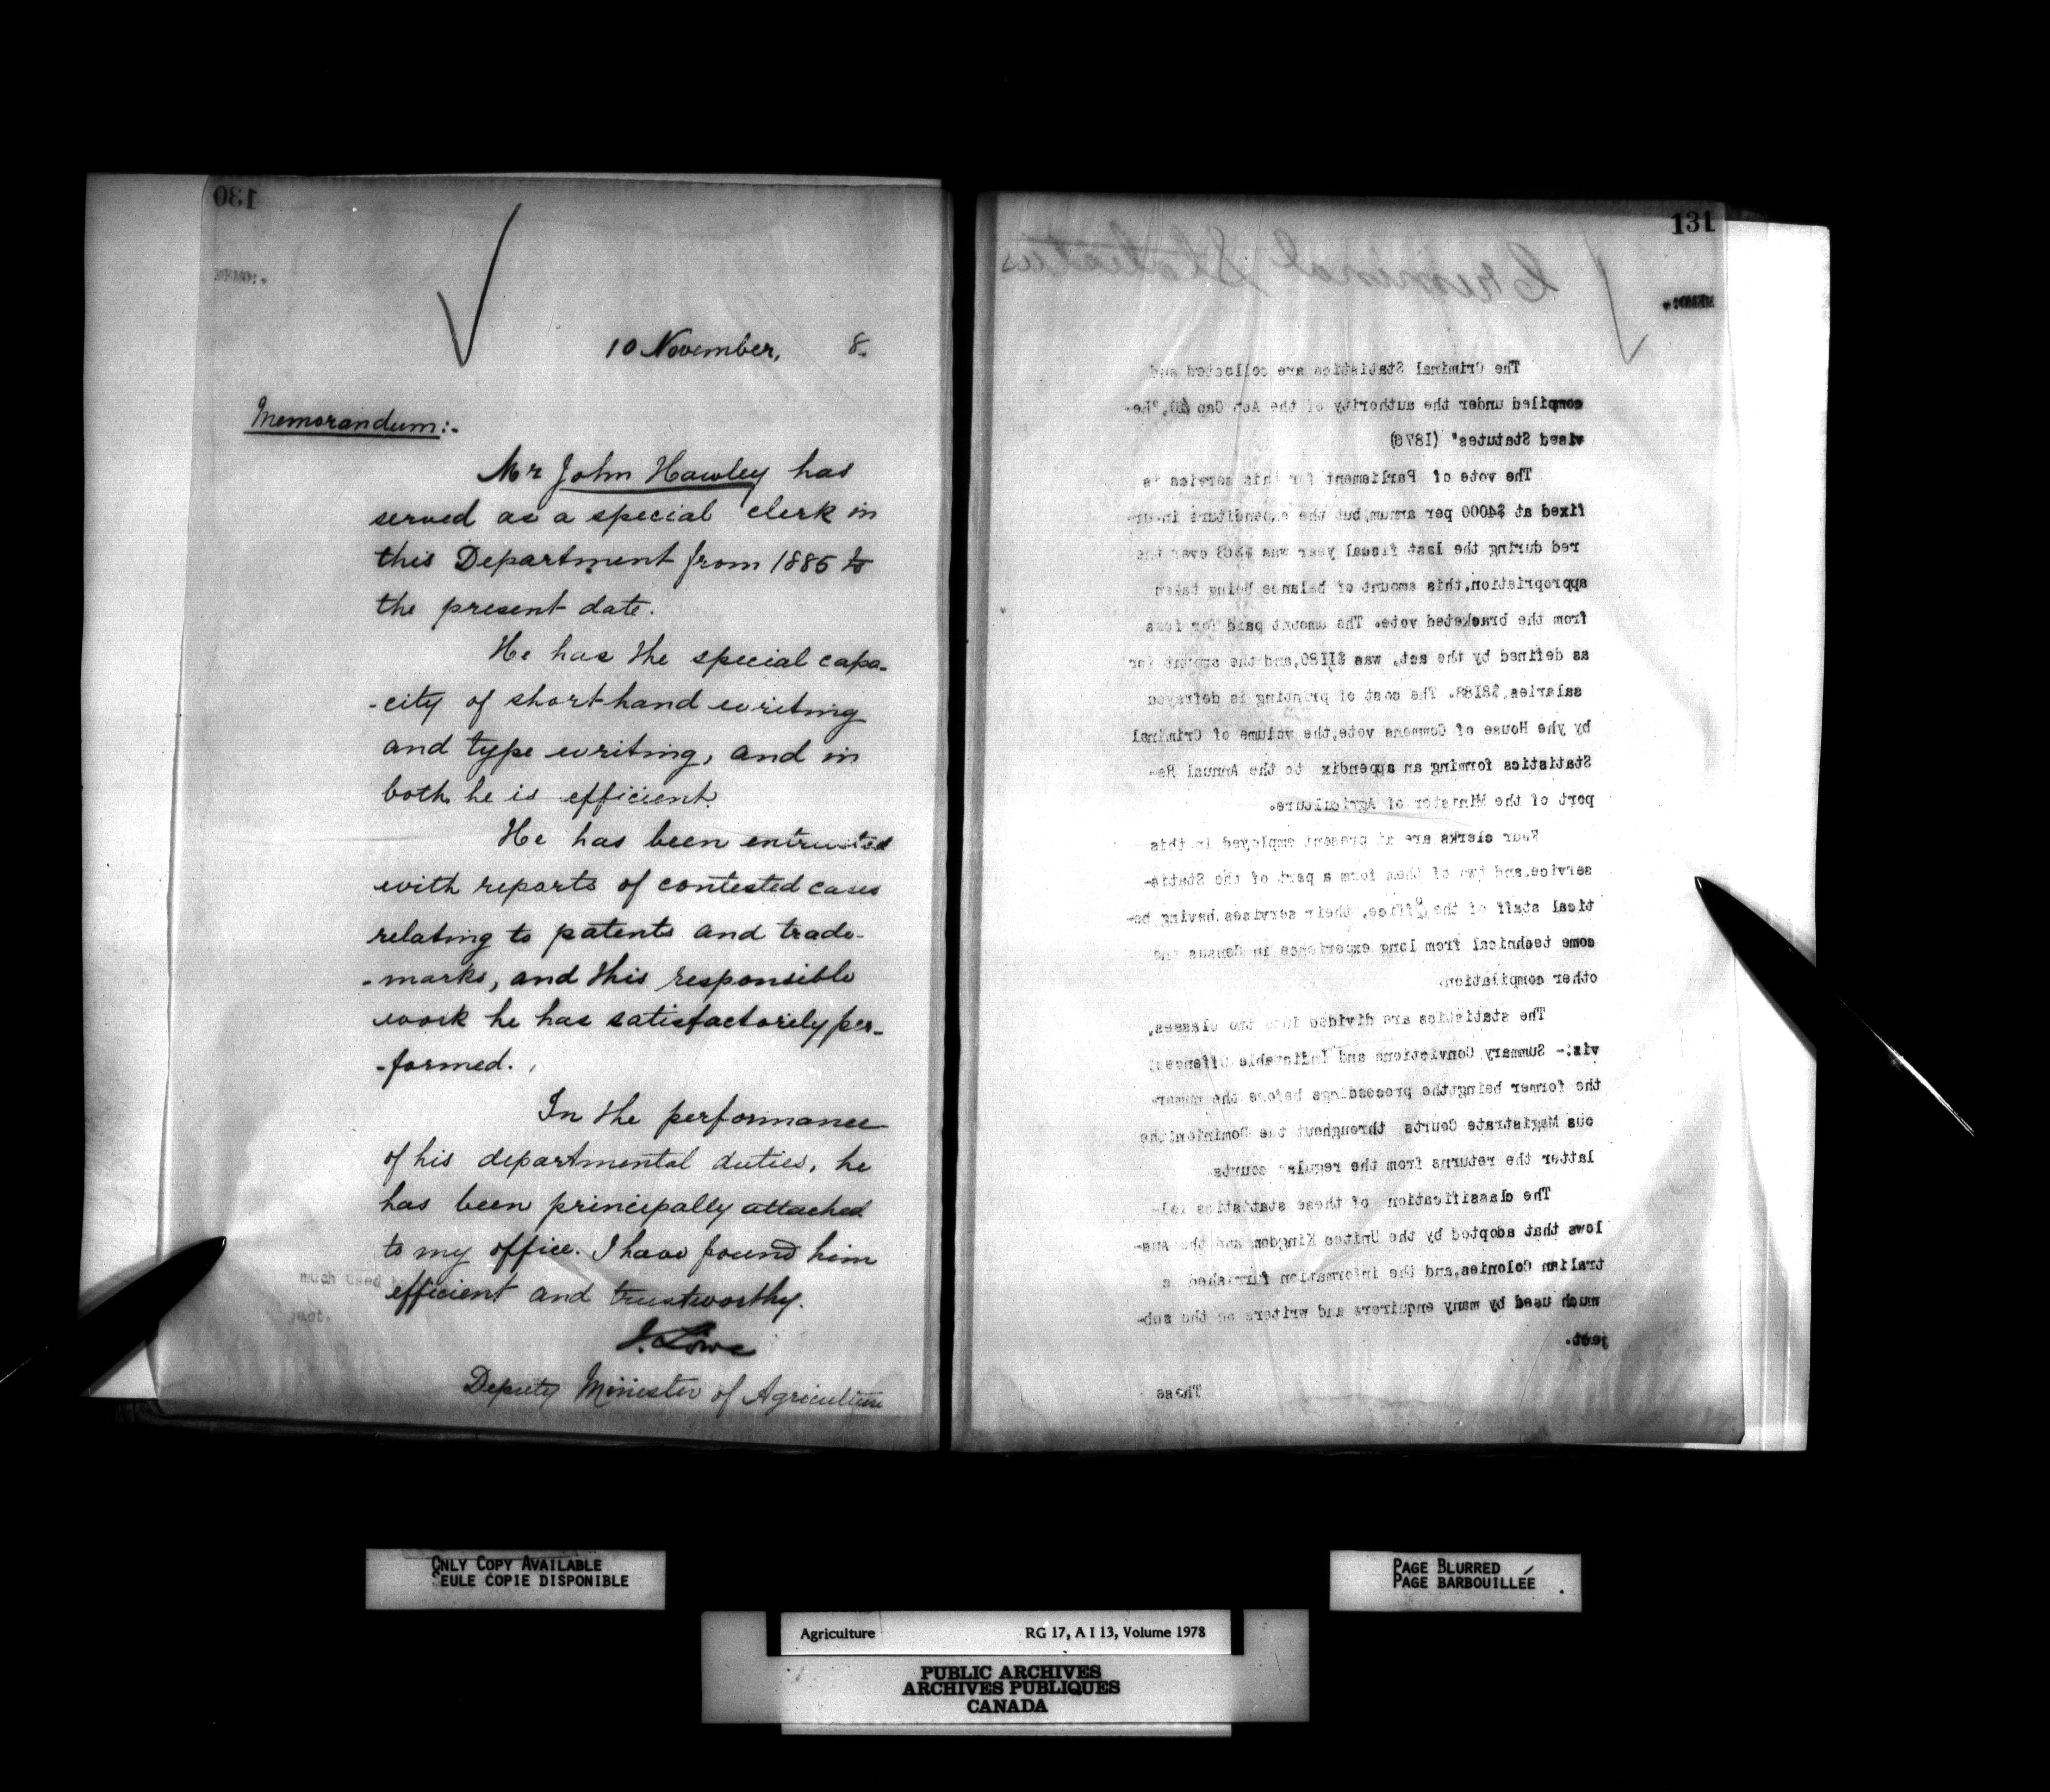 130
MEMO:-
10 November, 8.
Memorandum:-
Mr John Hawley has
served as a special clerk in
this Department from 1885 to
the present date.
He has the special capa-
-city of short-hand writing
and type writing, and in
both he is efficient.
He has been entrusted
with reports of contested cases
relating to patents and trade-
-marks, and this responsible
work he has satisfactorily per-
-formed.
In the performance
of his departmental duties, he
has been principally attached
to my office. I have found him
efficient and trustworthy.
much used
ject.
J. Lowe
Deputy Minister of Agriculture
131
Criminal Statistics
MEMO:-
The Criminal Statistics are collected and
compiled under the authority of the Act Cap "Re-
vised Statutes"
The vote of Parliament for this service is
fixed at $4000 per annum, but the expenditure incur-
red during the last fiscal year was over the
appropriation, this amount of balance being taken
from the bracketed vote. The amount paid for fees
as defined by the act, was $1180, and the amount for
salaries, The cost of printing is defrayed
by yhe House of Commons vote, the volume of Criminal
Statistics forming an appendix to the Annual Re-
port of the Minister of Agriculture.
Four clerks are at present employed in this
service, and two of them form a part of the Statis-
tical staff of the Office, their servises having be-
come technical from long experience in Census and
other compilation.
The statistics are divided into two classes,
viz:- Summary Convictions and Indictable Offences;
the former being the proceedings before the numer-
ous Magistrate Courts throughout the Dominion; the
latter the returns from the regular courts.
The classification of these statistics fol-
lows that adopted by the United Kingdom and the Aus-
tralian Colonies, and the information furnished is
much used by many enquirers and writers on the sub-
ject.
Those
ONLY COPY AVAILABLE
SEULE COPIE DISPONIBLE
PAGE BLURRED
PAGE BARBOUILLÉE
Agriculture RG 17, A I 13, Volume 1978
PUBLIC ARCHIVES
ARCHIVES PUBLIQUES
CANADA